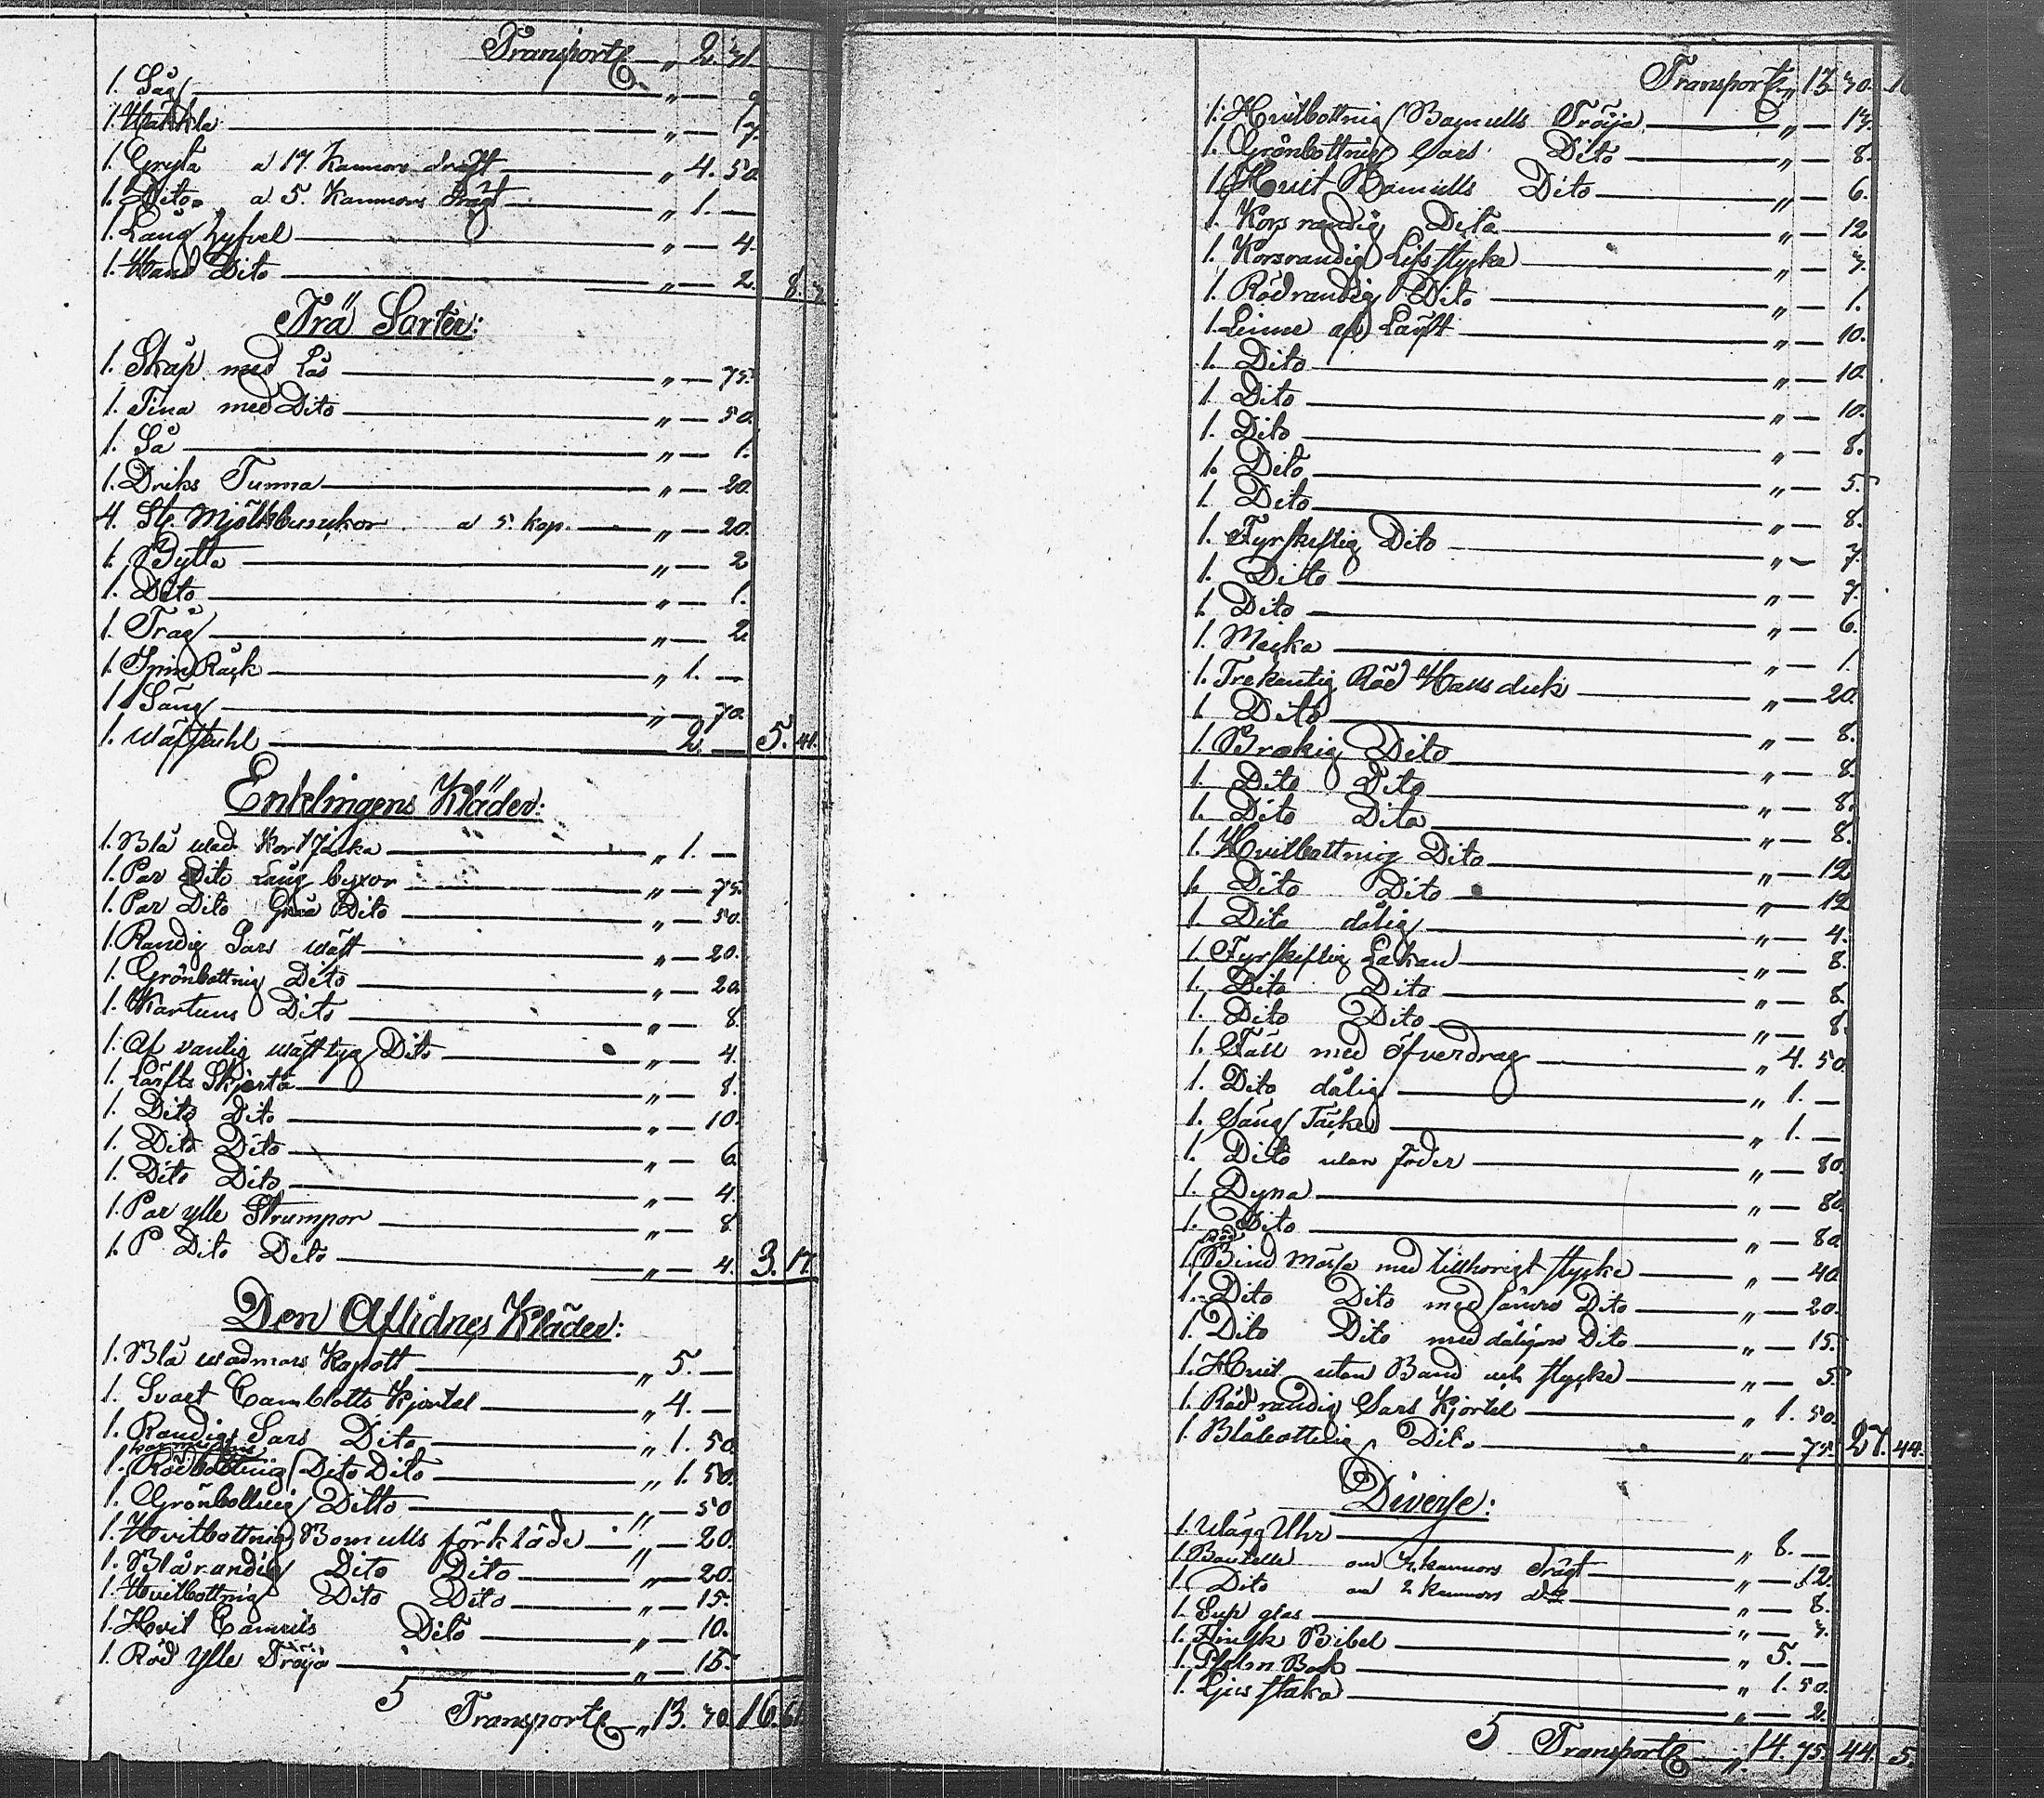 Transport „ 2. 71.
1. Såg „ —
1. Häkkla „ —
1. Gryta a 17. Kannors drägt „ 4. 50
1. Dito a 5. Kannors drägt „ 1. —
1. Lång Hyfvel „ — 4.
1. Hand Dito „ — 2. 8.
Trä Sorter:
1. Skåp med Lås „ — 75.
1. Tina med Dito „ — 50.
1. Så „ — 1.
1. Driks Tunna „ — 20.
4. St. Mjölkbunkor a 5. kop. „ — 20.
1. Bytta „ — 2
1. Dito „ — 1.
1. Tråg „ — 2.
1. Spin Råck „ 1. —
1. Säng „ — 70.
1. Wäfstuhl 2. — 5. 41.
Enklingens Kläder:
1. Blå wad. Kort Jacka „ 1. —
1. Par Dito Lång byxor „ — 75.
1. Par Dito Grå Dito „ — 50.
1. Randig Sars wäst „ — 20.
1. Grönbottnig Dito „ — 20.
1. Kartuns Dito „ — 8.
1. Af vanlig wäfttyg Dito „ — 4.
1. Lärfts Skjorta „ — 8.
1. Dito Dito „ — 10.
1. Dito Dito „ — 6.
1. Dito Dito „ — 4.
1. Par ylle Strumpor „ — 8
1. P Dito Dito „ — 4. 3. 17.
Den Aflidnes Kläder:
1. Blå wadmars Kapott „ 5. —
1. Svart Camblotts Kjortel „ 4. —
1. Randig Sars Dito „ 1. 50.
1. Rödbottnig Dito Dito „ 1. 50.
1. Grönbottnig Ditto „ — 50
1. Hvitbottnig Bomulls förkläde „ — 20.
1. Blårandig Dito Dito „ — 20.
1. Hvitbottnig Dito Dito „ — 15.
1. Hvit Dito „ — 10.
1. Röd Ylle Tröja „ — 15.
5 Transport „ 13. 70. 16. 61.
Transport „ 13. 70. 16
1. Hvitbottnig Bomulls Tröija „ — 17.
1. Grönbottnig Sars Dito „ — 8.
1. Hvit Bomulls Dito „ — 6.
1. Kors randig Dito „ — 12
1. Korsrandig Lifstycke „ — 7.
1. Rödrandig Dito „ — 1.
1. Leinne af Läyft „ — 10.
1. Dito „ — 10.
1. Dito „ — 10.
1. Dito „ — 8.
1. Dito „ — 5.
1. Dito „ — 8.
1. Fyrskeftig Dito „ — 7.
1. Dito „ — 7.
1. Dito „ — 6.
1. „ — 1.
1. Trekantig Röd Halsduk „ — 20.
1. Dito „ — 8.
1. Brokig Dito „ — 8.
1. Dito Dito „ — 8.
1. Dito Dito „ — 8.
1. Hvitbottnig Dito „ — 12
1. Dito Dito „ — 12
1. Dito dålig „ — 4.
1. Fyrskeftig Lakan „ — 8.
1. Dito Dito „ — 8.
1. Dito Dito „ — 8.
1. Fäll med öfverdrag „ 4. 50.
1. Dito dålig „ 1. —
1. Säng Täcke „ 1. —
1. Dito utan foder „ — 80.
1. Dyna „ — 80.
1. Dito „ — 80.
1. Röd Bind Mössa med tillhörigt stycke „ — 40.
1. Dito Dito med Dito „ — 20.
1. Dito Dito med dåligare Dito „ — 15.
1. Hvit utan Band och stycke „ — 5.
1. Röd randig Sars Kjortel „ 1. 50.
1. Blåbottnig Dito „ — 75. 27. 44.
Diverse:
1. Wägg Uhr „ 8. —
1. Boutelle om kannors drägt „ — 12.
1. Dito om 2 kannors do „ — 8.
1. Sup glas „ — 3.
1. Finsk Bibel „ 5. —
1. Psalm Bok „ 1. 50.
1. Ljus staka „ — 2.
5 Transport „ 14. 75. 44. 5.